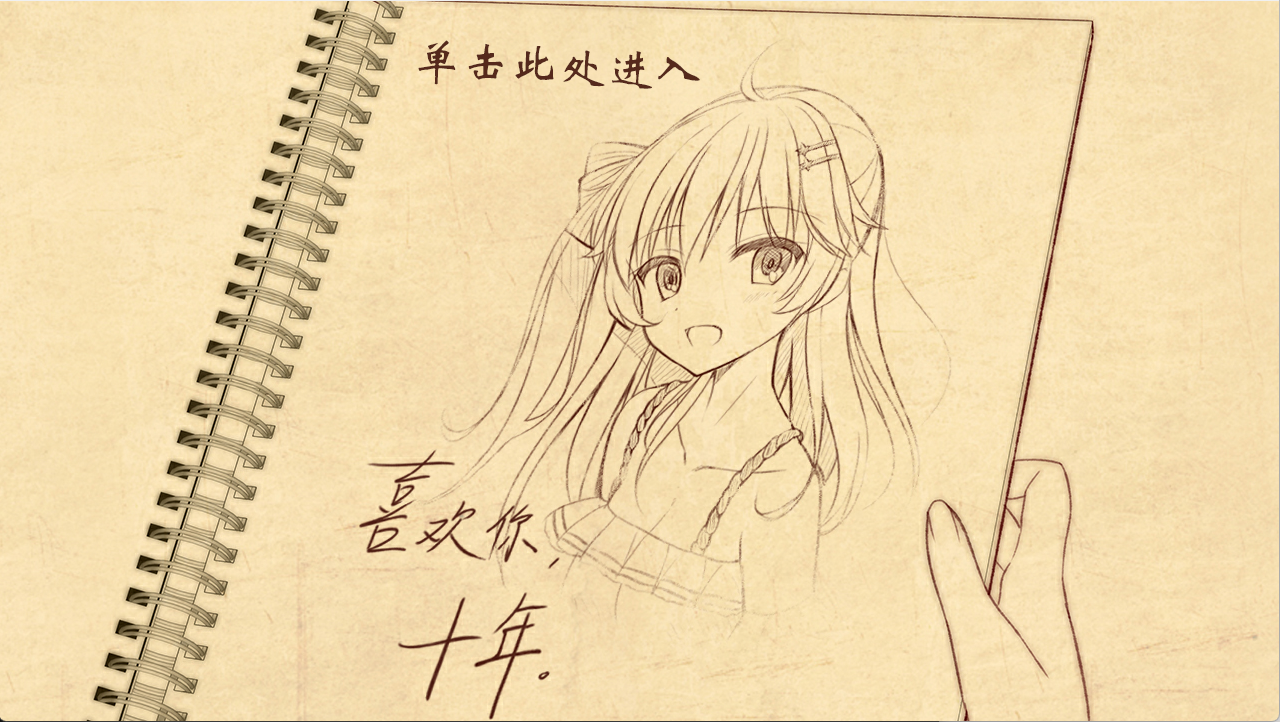 单击此处进入
喜欢你，
十年。